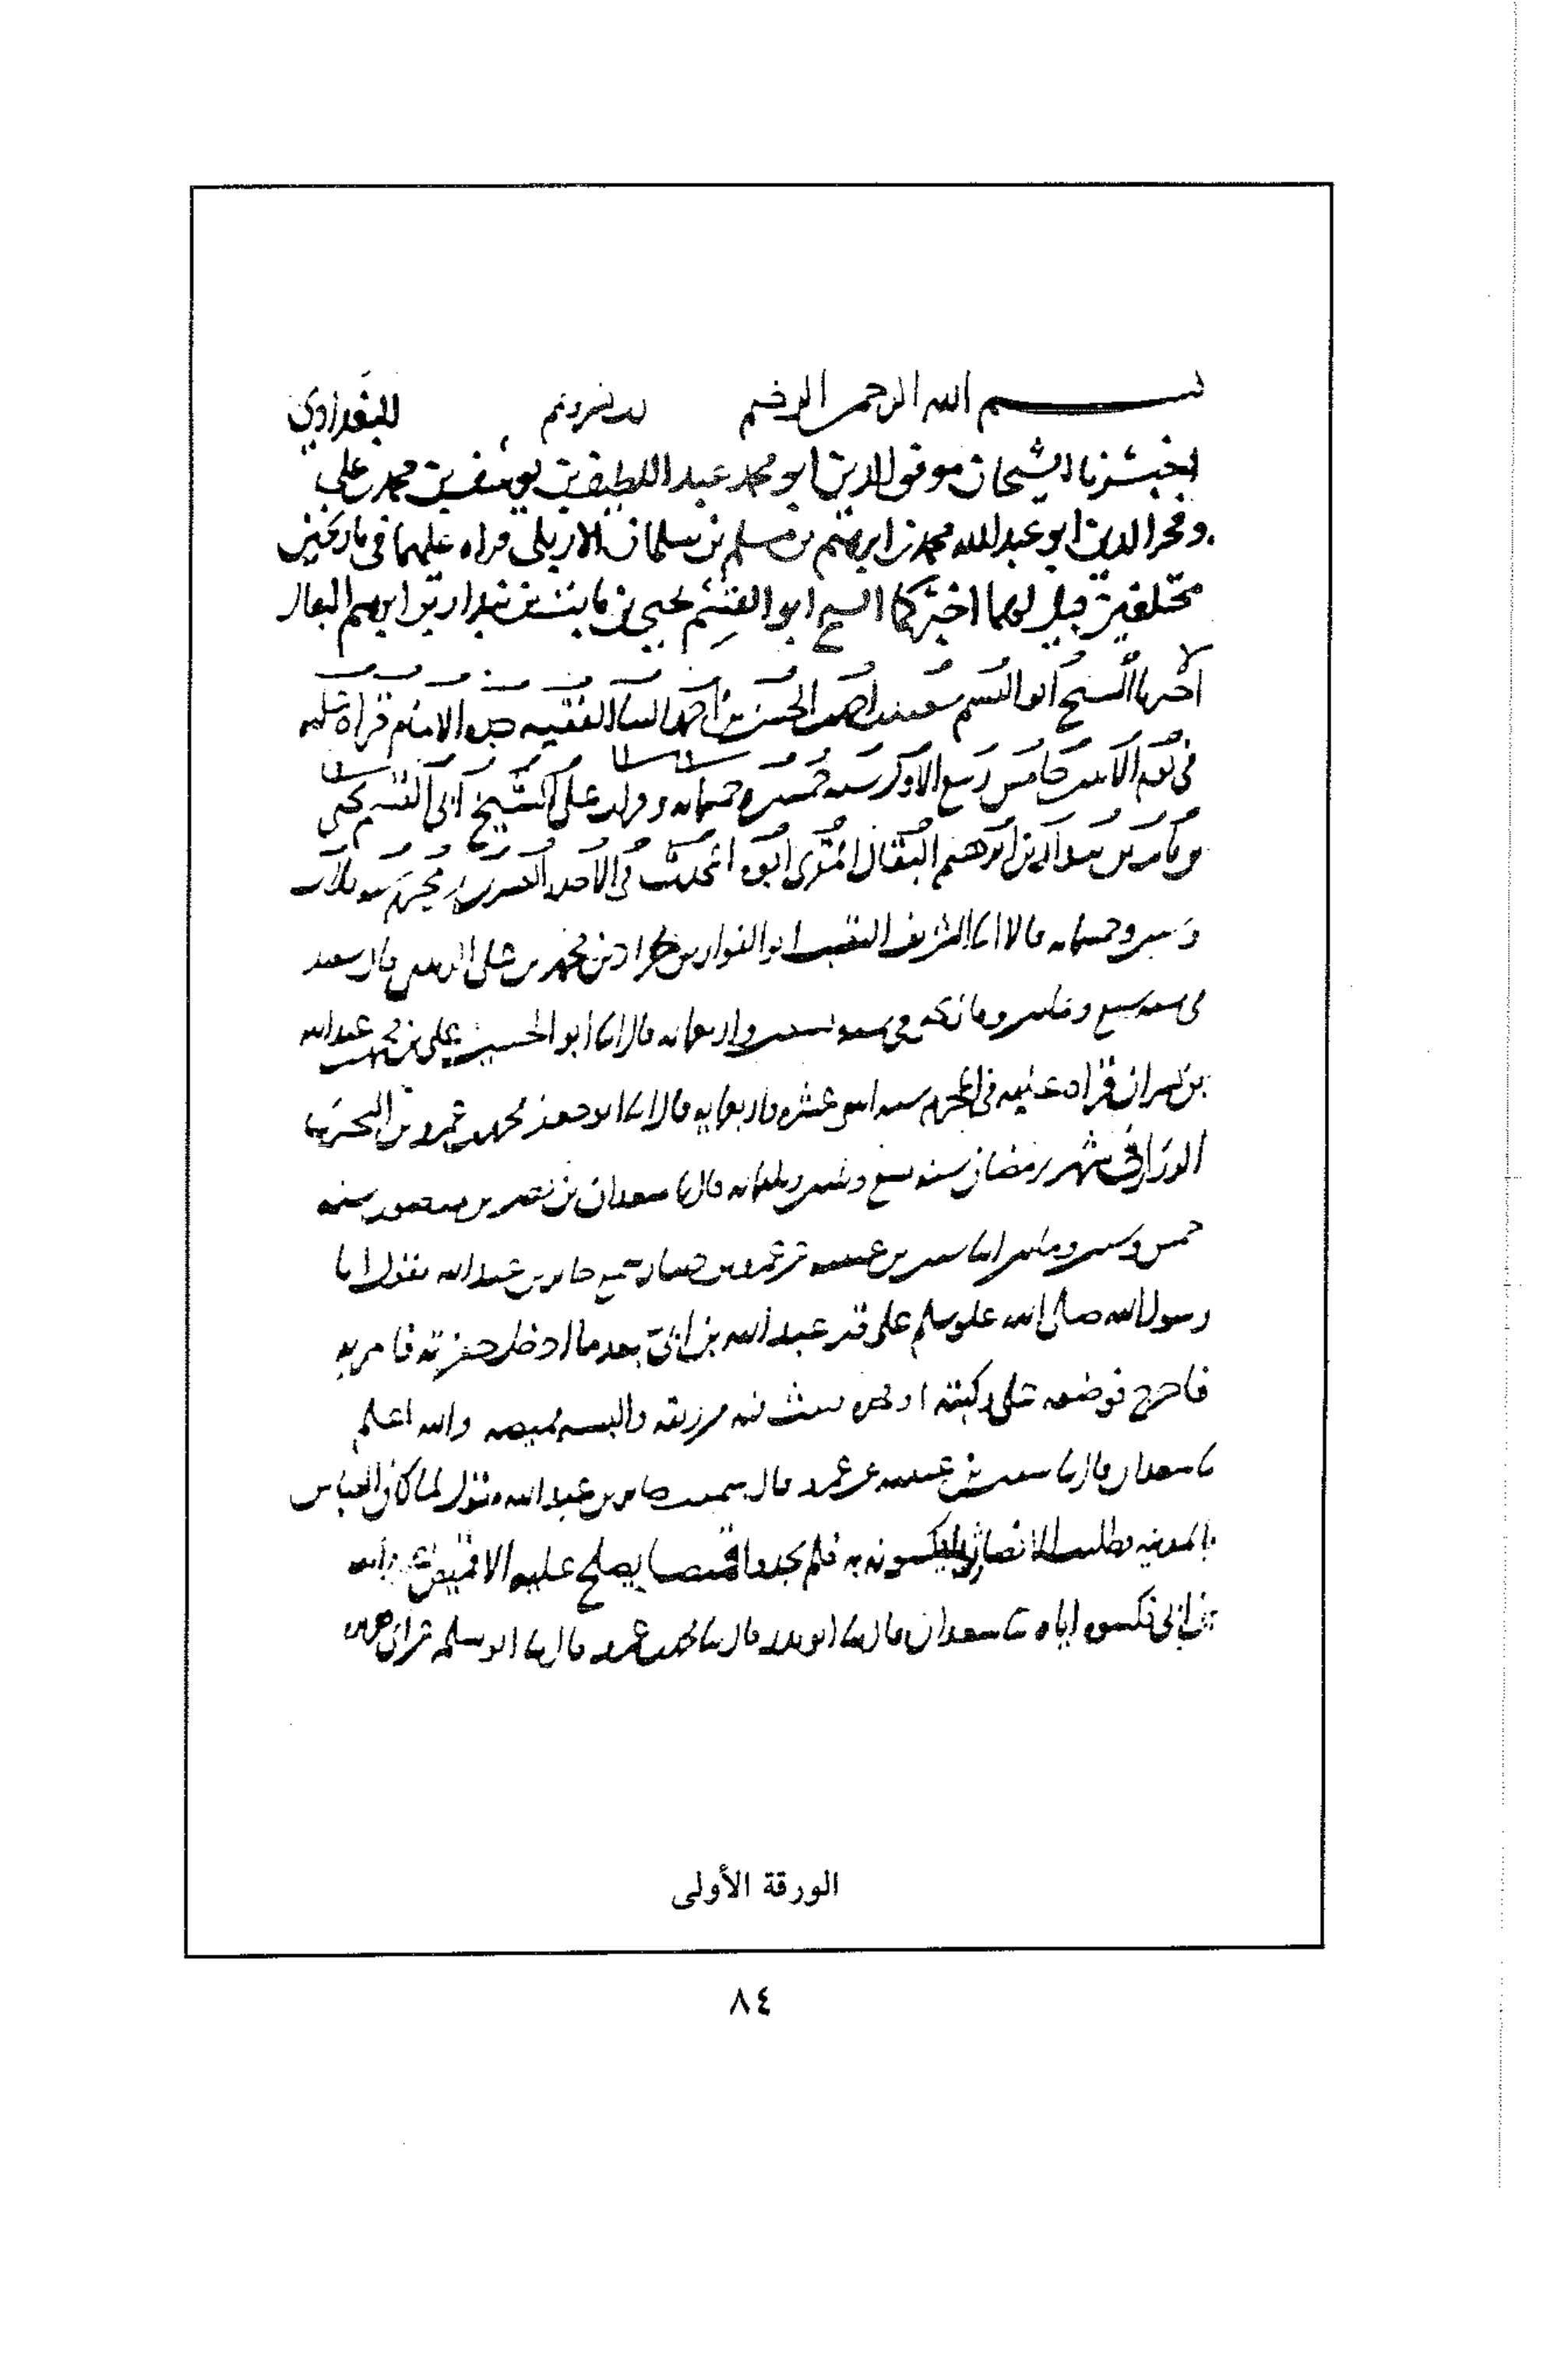 بسم الله الرحمن الرحيم للبغدادي
اخبرنا الشيخان موفق الدين ابو محمد عبد اللطيف بن يوسف بن محمد بن علي
وفخر الدين ابو عبد الله محمد بن ابرهيم بن مسلم بن سلمان الاربلي قراه عليهما في تاريخين
مختلفين قيل لهما اخبركما الشيخ ابو القسم يحيى بن ثابت بن بندار بن ابرهيم البقال
اخبرنا الشيخ ابو القسم سعيد بن احمد بن الحسن بن احمد البنا الفقيه قراة عليه
في يوم خامس ربيع الاول سنه وخمسمايه وقرات على الشيخ ابي القسم يحيى
بن ثابت بن بندار بن ابرهيم البقال المقري ابوه المحدث في الاحد العشرين من محرم سنه ثلاث
وستين وخمسمايه قالا انا الشريف النقيب ابو الفوارس طراد بن محمد بن علي الزينبي قال سعيد
في سنه سبع وثمانين واربعمايه قال انا ابو الحسين علي بن محمد بن عبد الله
بن بشران قراه عليه في المحرم سنه اثنتي عشره واربعمايه قال انا ابو جعفر محمد بن عمرو بن البختري
الرزاز في شهر رمضان سنه تسع وثلثمايه قال نا سعدان بن نصر بن منصور سنه
خمس وستين ومايتين انا سفين بن عيينه عن عمرو بن دينار سمع جابر بن عبد الله يقول اتا
رسول الله صلى الله عليه وسلم على قبر عبد الله بن ابي بعد ما ادخل حفرته فامر به
فاخرج فوضعه على ركبتيه او فخذه فنفث فيه من ريقه والبسه قميصه والله اعلم
نا سعدان قال نا سفين بن عيينه عن عمرو قال سمعت جابر بن عبد الله يقول لما كان العباس
بالمدينه وطلبت الانصار ثوبا يكسونه به فلم يجدوا قميصا يصلح عليه الا قميص عبد الله
بن ابي فكسوه اياه نا سعدان قال نا ابو بدر قال نا محمد بن عمرو قال نا ابو سلمه عن ابي هريره
الورقة الأولى
٨٤